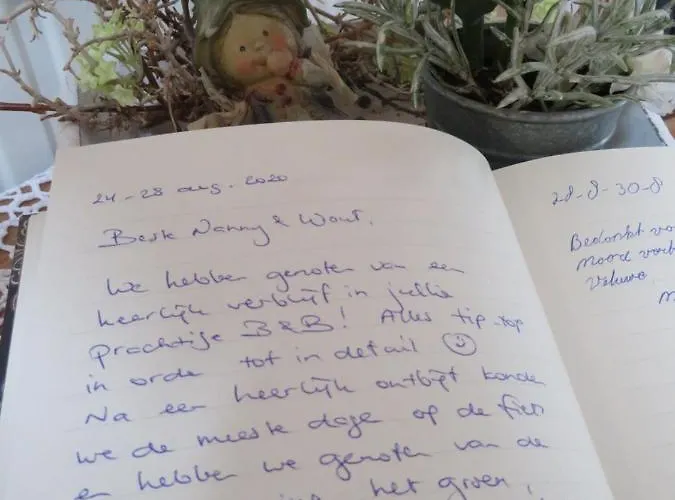 24-28 aug. 2020
Beste Nanny & Wout,
We hebben genoten van een
heerlijk verblijf in jullie
prachtige B&B! Alles tip-top
in orde tot in detail ☺
Na een heerlijk ontbijt konden
we de meeste dagen op de fiets
en hebben we genoten van de
het groen,
28-8-30-8
Bedankt
Veluwe